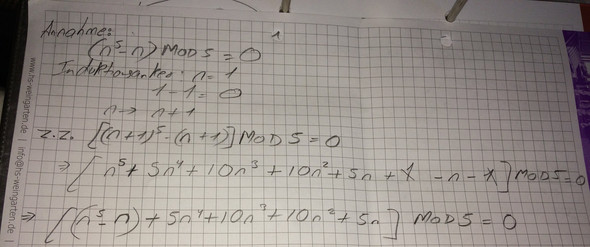 Annahme:
(n⁵-n) MOD 5 = 0
Induktionsanker: n=1
1-1=0
n → n+1
z.z. [(n+1)⁵-(n+1)] MOD 5 = 0
⇒ [n⁵ + 5n⁴ + 10n³ + 10n² + 5n + 1 - n - 1] MOD 5 = 0
⇒ [(n⁵-n) + 5n⁴ + 10n³ + 10n² + 5n] MOD 5 = 0
www.hs-weingarten.de | info@hs-weingarten.de |